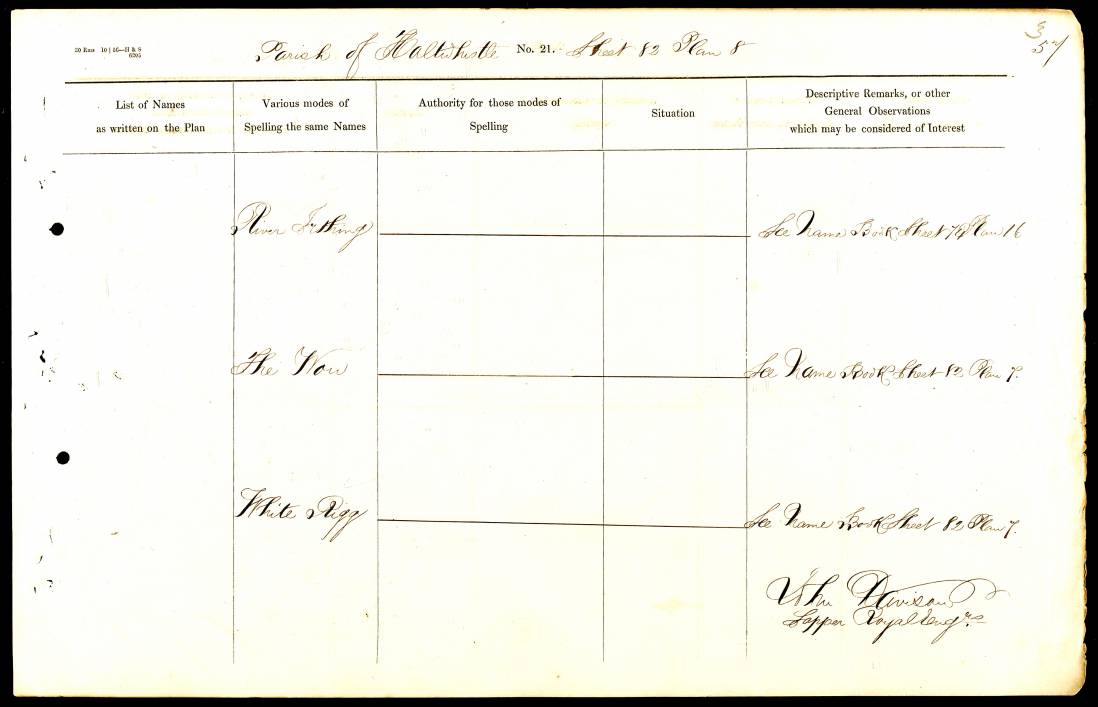 20 Rms 10 | 56—H & S
6205
Parish of Haltwhistle No. 21. Sheet 82 Plan 8
57
List of Names
as written on the Plan
Various modes of
Spelling the same Names
Authority for those modes of
Spelling
Situation
Descriptive Remarks, or other
General Observations
which may be considered of Interest
River Irthing See Name Book Sheet Plan 16
The Wou See Name Book Sheet 82 Plan 7.
White Rigg See Name Book Sheet 82 Plan 7.
Davison
Sapper Royal Engrs